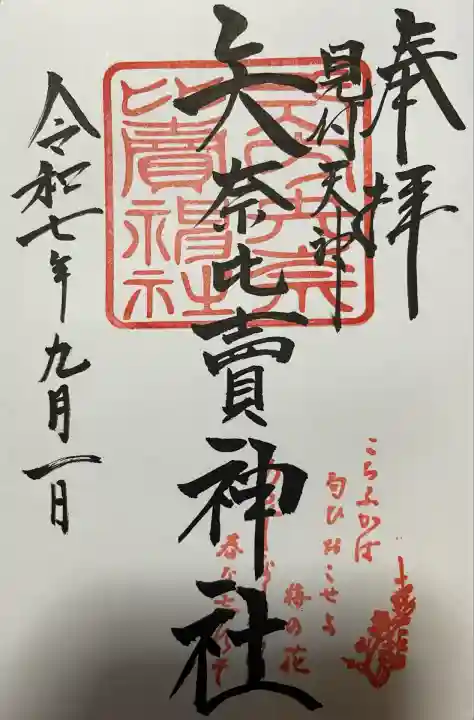 奉拝
見付天神
矢奈比賣神社
令和七年九月一日
矢奈比賣神社
こちふかば
匂ひおこせよ
梅の花
春な